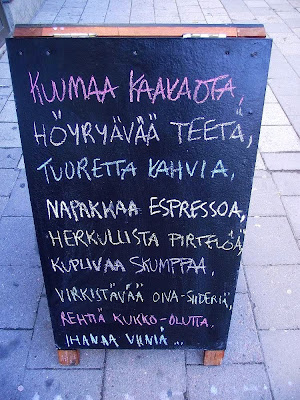 KUUMAA KAAKAOTA,
HÖYRYÄVÄÄ TEETÄ,
TUORETTA KAHVIA,
NAPAKKAA ESPRESSOA,
HERKULLISTA PIRTELÖÄ,
KUPLIVAA SKUMPPAA,
VIRKISTÄVÄÄ OIVA-SIIDERIÄ,
REHTIÄ KUKKO-OLUTTA,
IHANAA VIINIÄ...